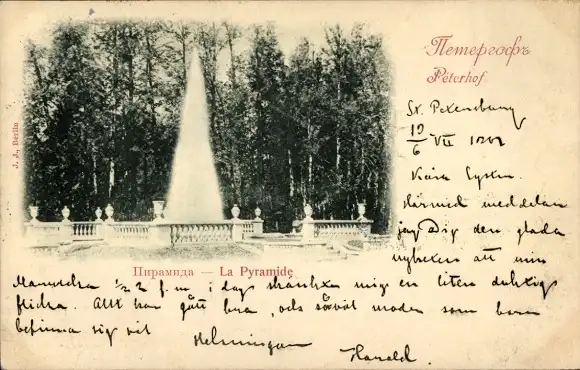 Петергофъ
Peterhof.
J. J., Berlin
St. Petersburg
19/6 VII
Kära Syster.
Härmed meddelar
jag Dig den glada
nyheten att min
½ 2 f.m i dag skänkte mig en liten duktig
flicka. Allt har gått bra, och såväl moder som barn
befinna sig väl
Пирамида — La Pyramide
Helsningar
Harald.